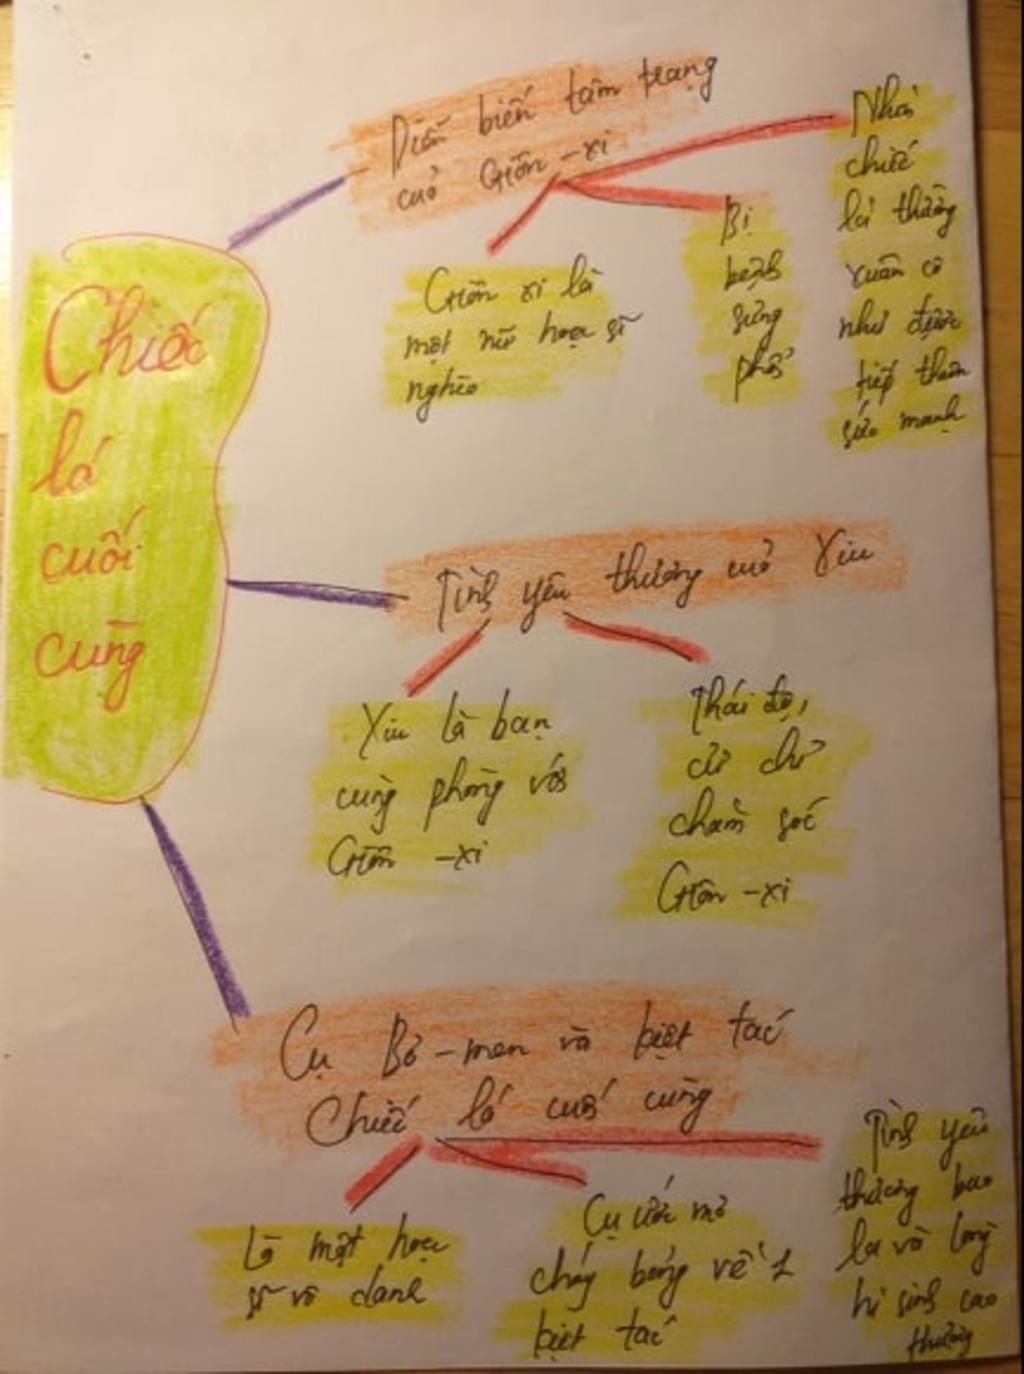 Chiếc
lá
cuối
cùng
Diễn biến tâm trạng
của Giôn-xi
Giôn xi là
một nữ họa sĩ
nghèo
Bị
bệnh
sưng
phổi
Nhờ
chiếc
lá thường
xuân cô
như được
tiếp thêm
sức mạnh
Tình yêu thương của Xiu
Xiu là bạn
cùng phòng với
Giôn -xi
Thái độ,
cử chỉ
chăm sóc
Giôn -xi
Cụ Bơ-men và kiệt tác
Chiếc lá cuối cùng
Là một họa
sĩ vô danh
Cụ ước mơ
cháy bỏng vẽ 1
kiệt tác
Tình yêu
thương bao
la và lòng
hi sinh cao
thượng